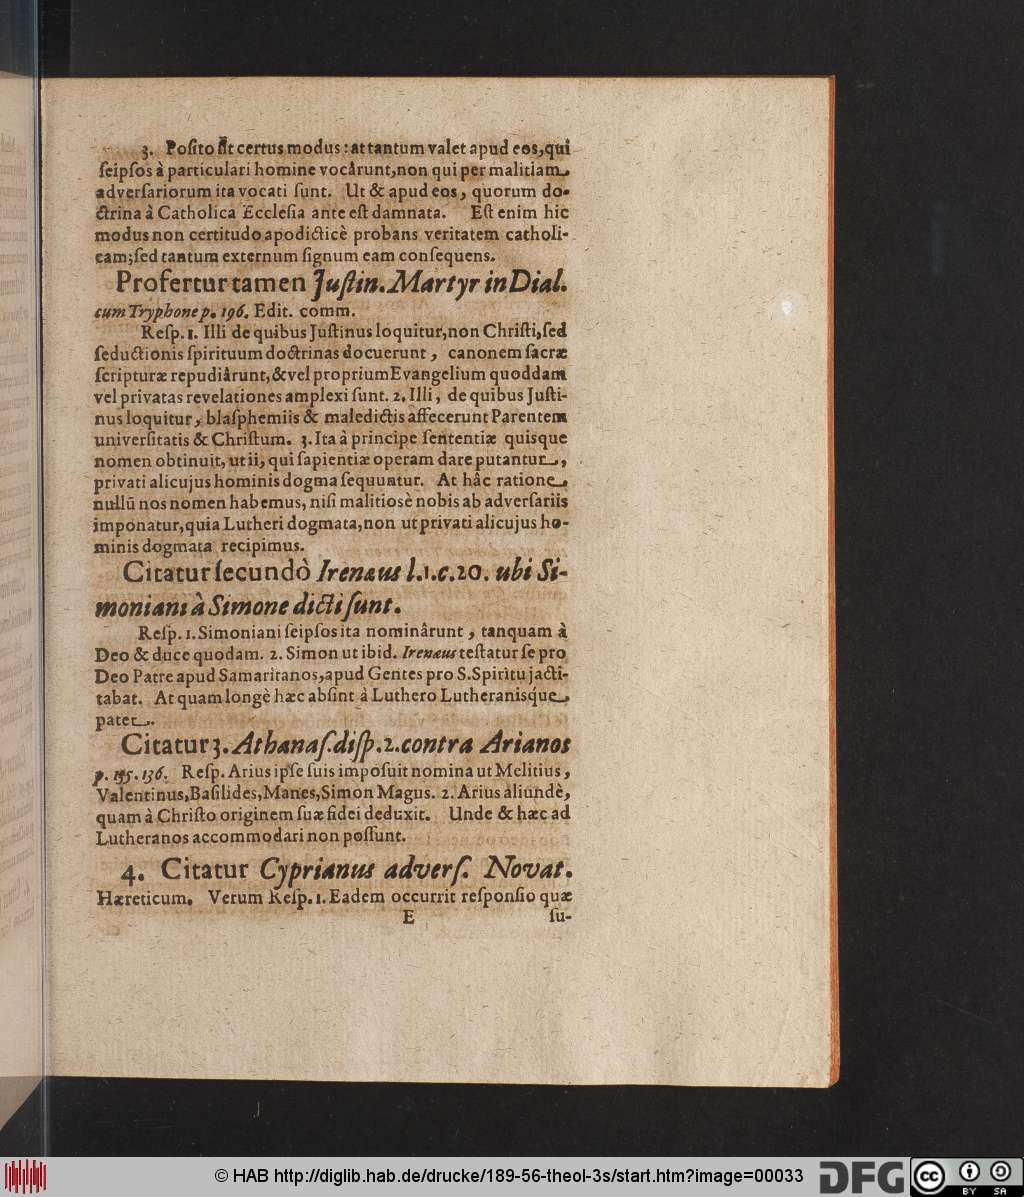 3. Posito sit certus modus: at tantum valet apud eos, qui
seipsos à particulari homine vocârunt, non qui per malitiam
adversariorum ita vocati sunt. Ut & apud eos, quorum do-
ctrina à Catholica Ecclesia ante est damnata. Est enim hic
modus non certitudo apodicticè probans veritatem catholi-
cam; sed tantum externum signum eam consequens.
Profertur tamen Justin. Martyr in Dial.
cum Tryphone p. 196. Edit. comm.
Resp. 1. Illi de quibus Justinus loquitur, non Christi, sed
seductionis spirituum doctrinas docuerunt, canonem sacræ
scripturæ repudiârunt, & vel proprium Evangelium quoddam
vel privatas revelationes amplexi sunt. 2. Illi, de quibus Justi-
nus loquitur, blasphemiis & maledictis affecerunt Parentem
universitatis & Christum. 3. Ita à principe sententiæ quisque
nomen obtinuit, ut ii, qui sapientiæ operam dare putantur,
privati alicujus hominis dogma sequuntur. At hâc ratione
nullū nos nomen habemus, nisi malitiosè nobis ab adversariis
imponatur, quia Lutheri dogmata, non ut privati alicujus ho-
minis dogmata recipimus.
Citatur secundò Irenæus l.1.c.20. ubi Si-
moniani à Simone dicti sunt.
Resp. 1. Simoniani seipsos ita nominârunt, tanquam à
Deo & duce quodam. 2. Simon ut ibid. Irenæus testatur se pro
Deo Patre apud Samaritanos, apud Gentes pro S. Spiritu jacti-
tabat. At quam longè hæc absint à Luthero Lutheranisque
patet.
Citatur 3. Athanas. disp. 2. contra Arianos
p. 135. 136. Resp. Arius ipse suis imposuit nomina ut Melitius,
Valentinus, Basilides, Manes, Simon Magus. 2. Arius aliundè,
quam à Christo originem suæ fidei deduxit. Unde & hæc ad
Lutheranos accommodari non possunt.
4. Citatur Cyprianus advers. Novat.
Hæreticum. Verum Resp. 1. Eadem occurrit responsio quæ
E su-
© HAB http://diglib.hab.de/drucke/189-56-theol-3s/start.htm?image=00033
DFG
cc BY SA